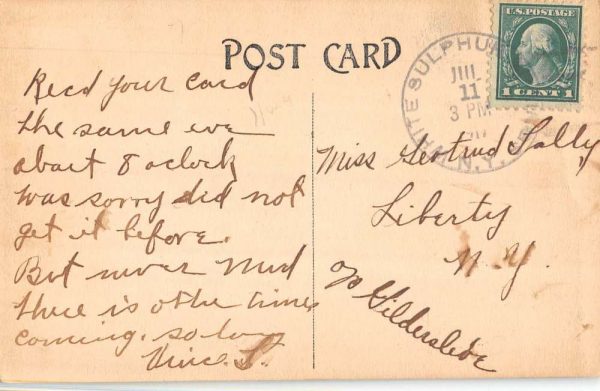 POST CARD
Recd your card
the same eve
about 8 oclock
was sorry did not
get it before.
But never mind
there is other times
coming. so long
Vince. S.
WHITE SULPHUR
N.Y.
JUL
11
3 PM
U.S. POSTAGE
1 CENT 1
Miss Gertrud Lally
Liberty
N.Y.
c/o Gildersleive